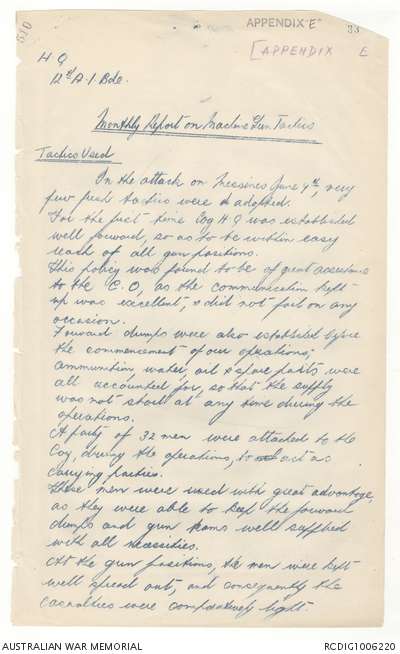 510
APPENDIX "E"
33
[APPENDIX E
H Q
12th A.I Bde.
Monthly Report on Machine Gun Tactics
Tactics Used
In the attack on Messines June 7th, very
few fresh tactics were adopted.
For the first time Coy H.Q was established
well forward, so as to be within easy
reach of all gun positions.
This policy was found to be of great assistance
to the C.O, as the communication kept
up was excellent, & did not fail on any
occasion.
Forward dumps were also established before
the commencement of our operations,
ammunition, water, oil & spare parts were
all accounted for, so that the supply
was not short at any time during the
operations.
A party of 32 men were attached to the
Coy, during the operations, to act as
carrying parties.
These men were used with great advantage,
as they were able to keep the forward
dumps and gun teams well supplied
with all necessities.
At the gun positions, the men were kept
well spread out, and consequently the
casualties were comparatively light.
AUSTRALIAN WAR MEMORIAL
RCDIG1006220